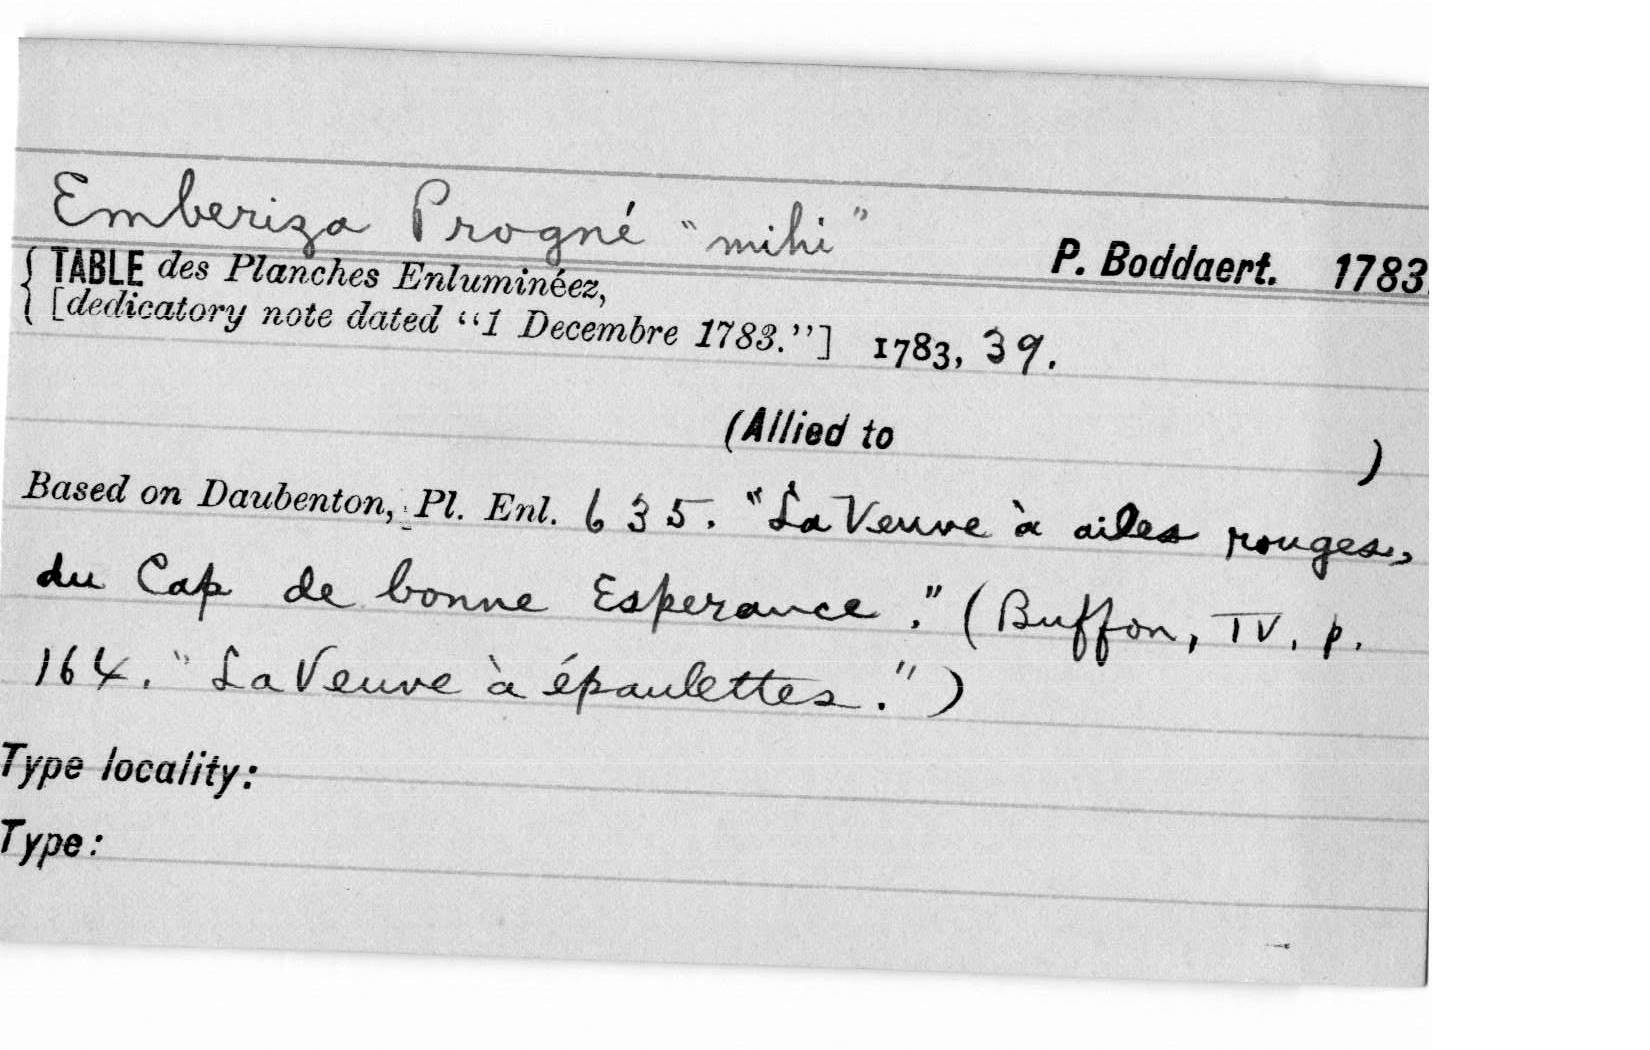 Emberiza Progné "mihi"
P. Boddaert. 1783.
{ TABLE des Planches Enluminéez,
[dedicatory note dated "1 Decembre 1783."] 1783, 39.
(Allied to )
Based on Daubenton, Pl. Enl. 635. "La Veuve à ailes rouges,
du Cap de bonne Esperance." (Buffon, IV. p.
164. "La Veuve à épaulettes.")
Type locality:
Type: